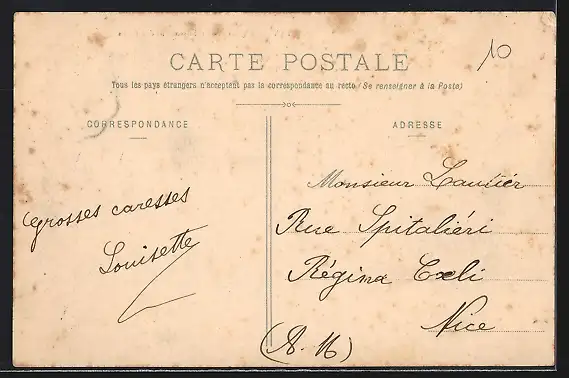 CARTE POSTALE
Tous les pays étrangers n'acceptent pas la correspondance au recto (Se renseigner à la Poste)
CORRESPONDANCE
Grosses caresses
Louisette
10
ADRESSE
Monsieur Lautiér
Rue Spitaliéri
Régina Cœli
Nice
(A. M)